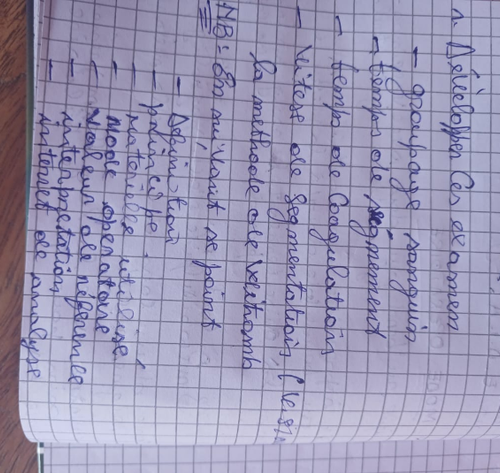 1. Développer les examen
- groupage sanguin
- temps de segement
- temps de Coagulation
- vitese de segmentation, (
la methode de
NB: En suivant se point
- Définition
- principe
- materiel utilisé
- mode operatoire
- valeur de reference
- interpretation
- interet de analyse